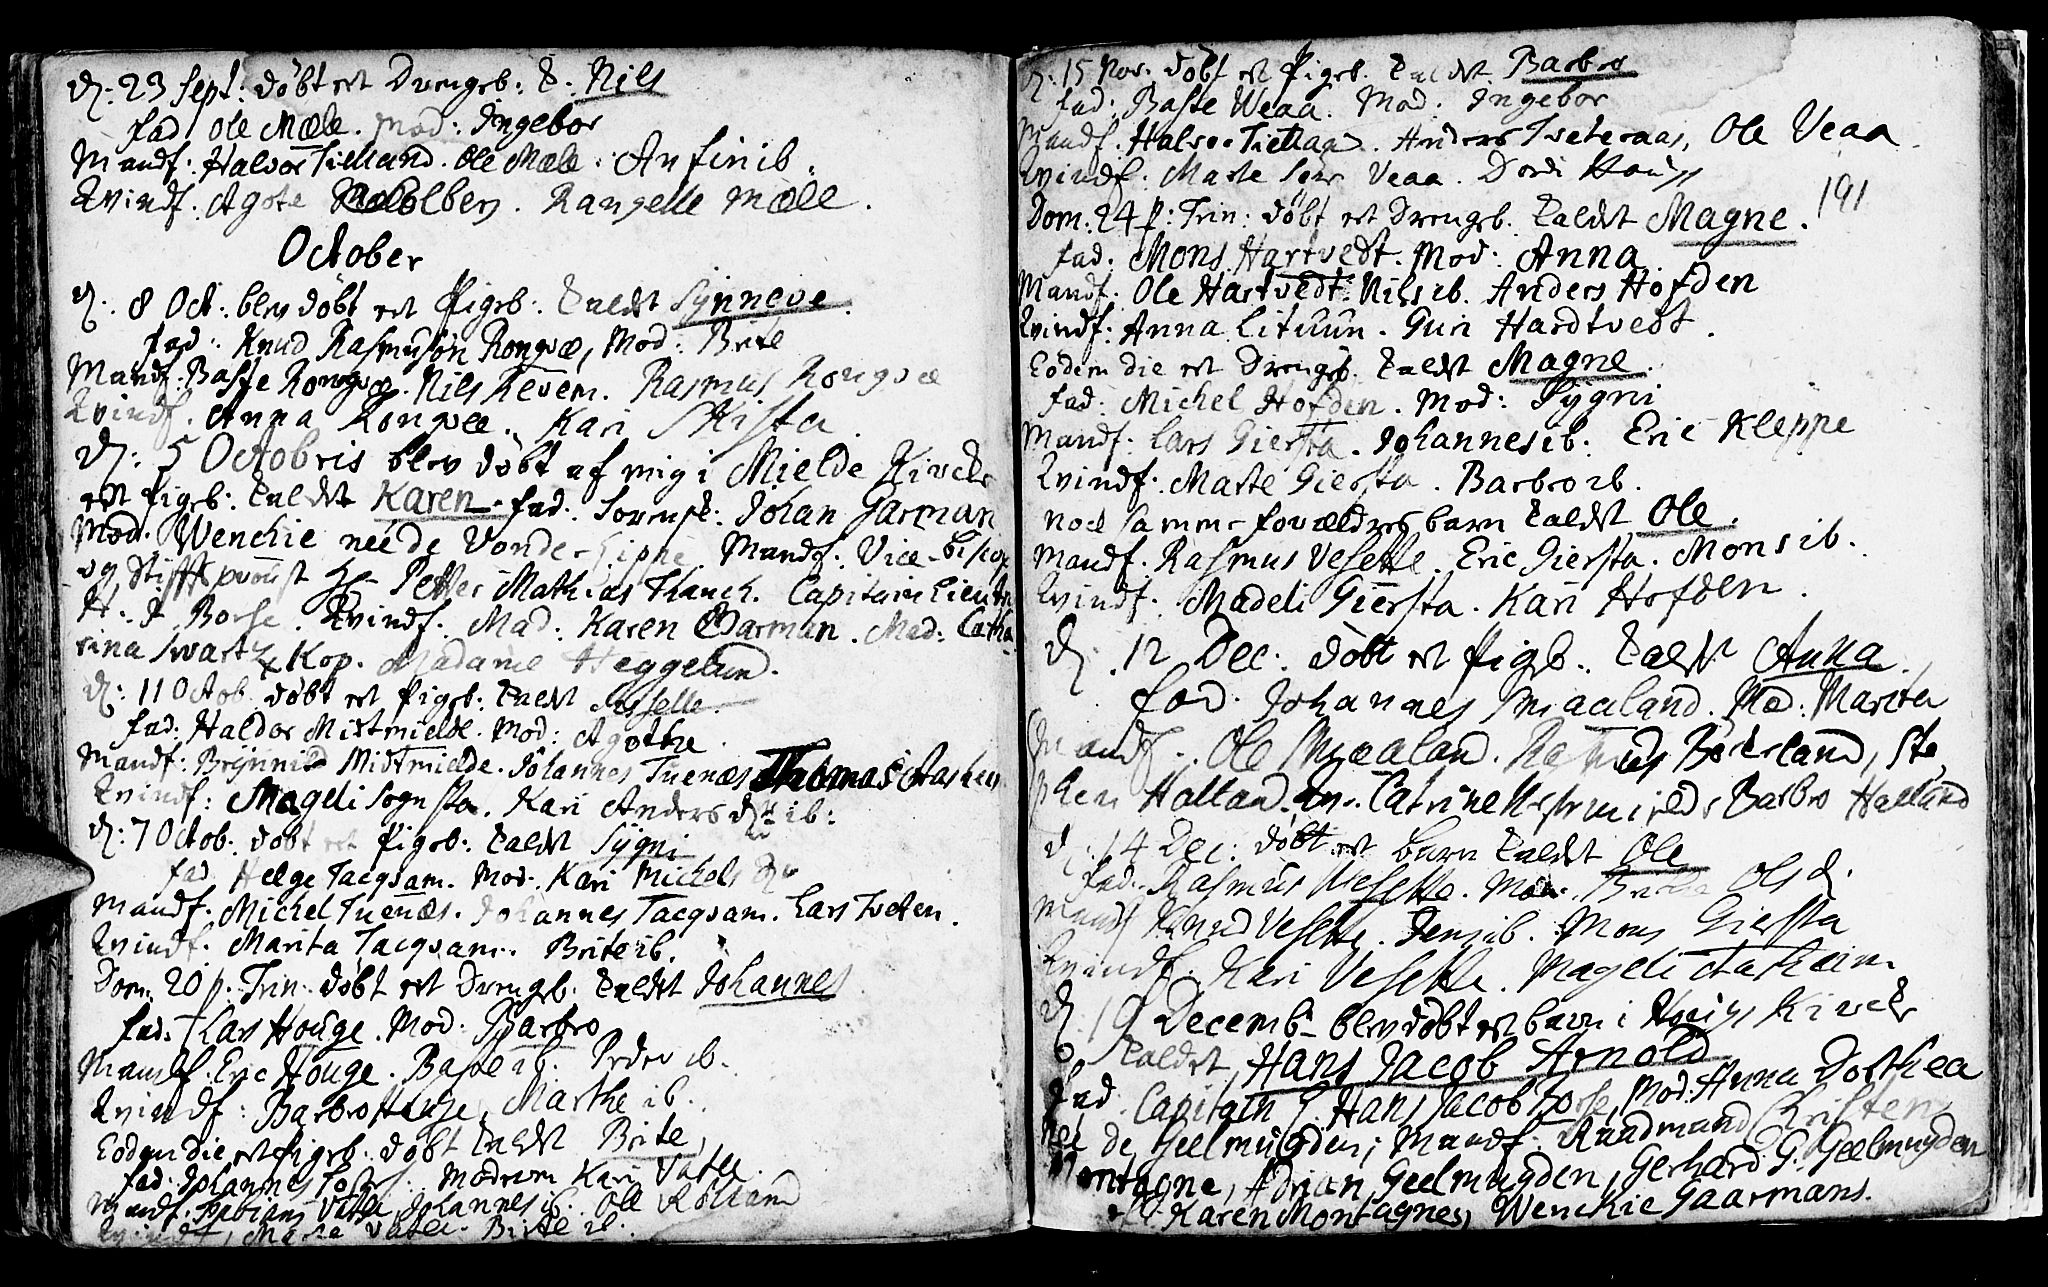 d: 23 Sept: døbt et Drengeb: k: Nils
fad Ole Mæle. Mod: Ingebor
Mandf: Halvor Tielland. Ole Mæle. Anfin ib.
Kvindf. Agote Rangelle Mæle.
October
d. 8 Oct: blev døbt et Pigeb: kaldet Synneve.
fad: Knud Rasmusøn Rongvæ, Mod: Brite
Mandf: Baste Rongvæ. Nils Revem. Rasmus Rongvæ
Kvindf. Anna Rongvæ. Kari Skista.
d: 5 Octobris blev døbt af mig i Mielde Kircke
et Pigeb: kaldet Karen. fad: Sorensk: Johan Garman
Mod. Wenckie née de Vonde Mandf. Vice-Biskop
og Stifftsproust Hr Petter Mathias Capitain Lieutn
H. Borse. Kvindf. Mad: Karen Garman. Mad: Catha
rina Swartz Kop. Madame Heggelund.
d: 11 Octob døbt et Pigeb: kaldet Asselle.
fad: Haldor Mitmielde. Mod: Agothe.
Mandf: Brynnild Midtmielde. Johannes Tuenæs Thomas
Kvindf: Mageli Sognsta. Kari Anders dtr ib:
d: 7 Octob: døbt et Pigeb: kaldet Sygni
fad Helge Tacqvam. Mod: Kari Michels dtr
Mandf. Michel Tuenæs. Johannes Tacqvam. Lars Tveten.
Kvindf. Marita Tacqvam. Brite ib.
Dom. 20 p. Trin: døbt et Drengeb: kaldet Johannes
fad: Lars Houge. Mod: Barbro
Mandf. Eric Houge. Baste ib. Peder ib.
Kvindf: Barbro Houge, Marthe ib.
Eodem die et Pigeb: døbt kaldet Brite,
fad: Johannes Moderen Kari Vatle.
Mandf. Fabian Vatle, Johannes ib. Ole Rolland
Kvindf, Marta Vatle. Brite ib.
d: 15 Nov. døbt et Pigeb. kaldet Barbro
fad: Baste Weaa. Mod: Ingebor
Mandf. Halvor Tiellaa. Anders Tveteraas, Ole Veaa
Kvindf: Marte Veaa. Dordi Houg
191
Dom: 24 p: Trin: døbt et Drengeb. kaldet Magne.
fad. Mons Hartvedt. Mod: Anna
Mandf: Ole Hartvedt. Nils ib. Anders Hofden
Kvindf: Anna Lituun. Guri Hardtvedt.
Eodem die et Drengeb. kaldet Magne.
fad: Michel Hofden. Mod: Sygni
Mandf: Lars Giersta. Johannes ib: Eric Kleppe
Kvindf: Marte Giersta. Barbro ib.
nock samme forældres barn kaldet Ole.
Mandf. Rasmus Veselle. Eric Giersta. Mons ib.
Kvindf: Madeli Giersta. Kari Hofden.
d. 12 Dec: døbt et Pigeb: kaldet Anna.
fad. Johannes Smaaland. Mod: Marita
Mandf. Ole Smaaland. Rasmus Børkeland, Ste
phen Halland. Qv. Catrine Barbro Halland
d. 14 Dec: døbt et barn kaldet Ole
fad. Rasmus Veselle. Mod: Olsd.
Mandf Knud Veselle. Jens ib. Mons Giersta
Kvindf: Kari Veselle. Mageli Aasheim.
d. 19 Decemb. blev døbt et barn i Houigs Kircke
kaldet, Hans Jacob Arnold
fad. Capitain H. Hans Jacob Borse, Mod: Anna Dorthea
née de Geelmuyden; Mandf. Raadmand Christen
Montagne, Adrian Geelmuyden, Gerhard G. Geelmuyden
Karen Montagnes, Wenckie Gaarmans.